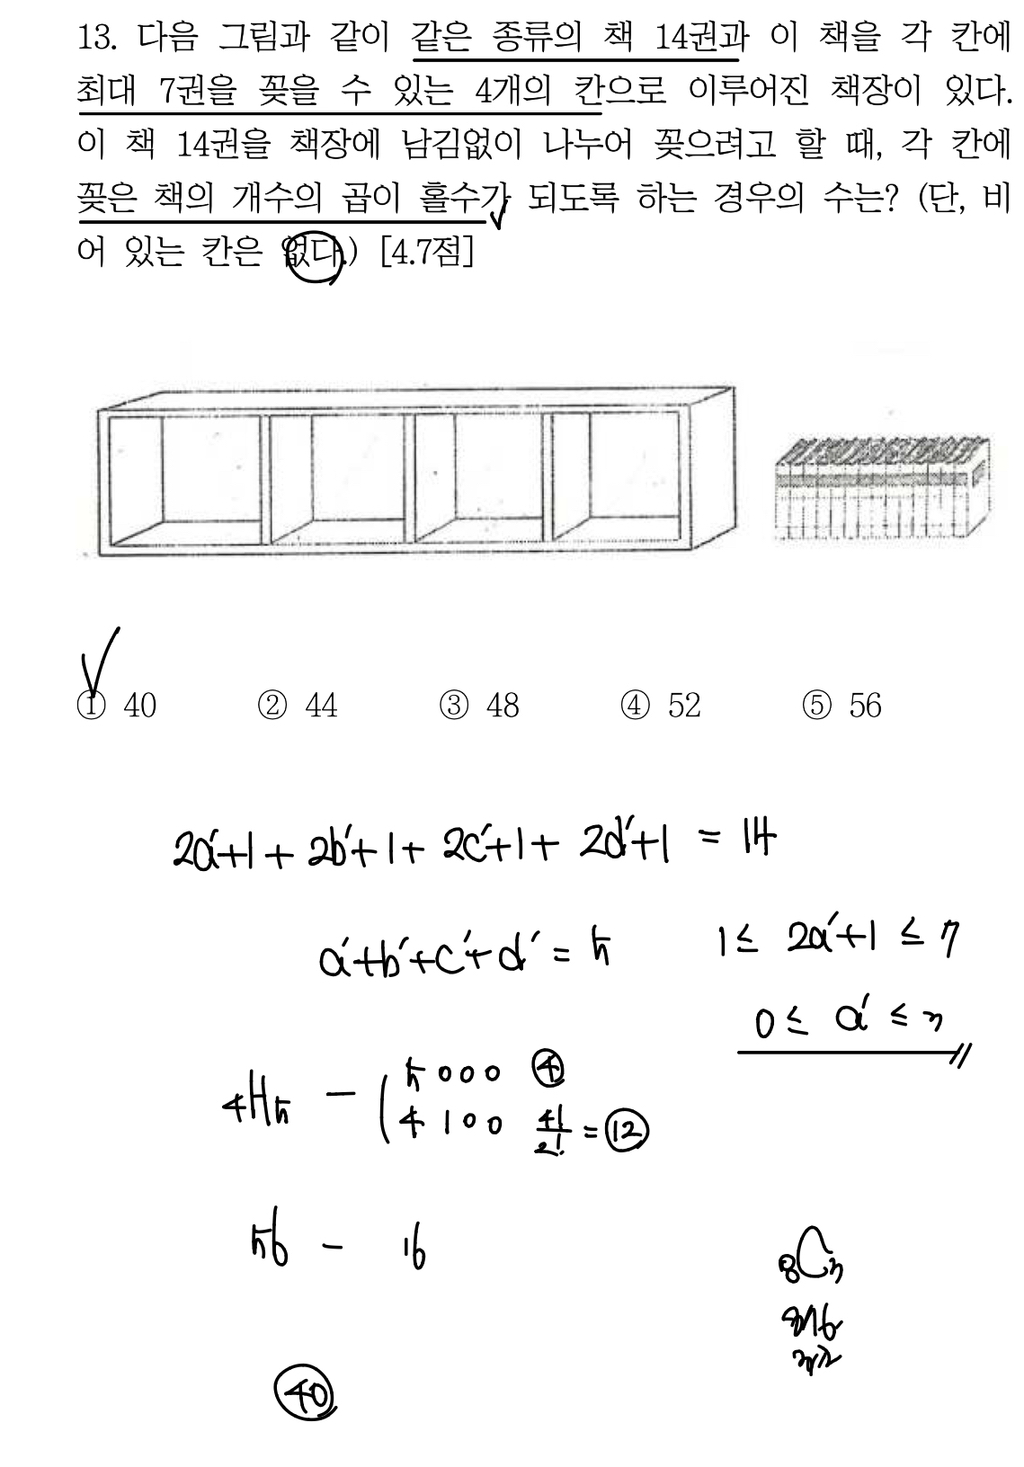 13. 다음 그림과 같이 같은 종류의 책 14권과 이 책을 각 칸에
최대 7권을 꽂을 수 있는 4개의 칸으로 이루어진 책장이 있다.
이 책 14권을 책장에 남김없이 나누어 꽂으려고 할 때, 각 칸에
꽂은 책의 개수의 곱이 홀수가 되도록 하는 경우의 수는? (단, 비
어 있는 칸은 없다.) [4.7점]
① 40 ② 44 ③ 48 ④ 52 ⑤ 56
2a'+1 + 2b'+1 + 2c'+1 + 2d'+1 = 14
a'+b'+c'+d' = 5
1 ≤ 2a'+1 ≤ 7
0 ≤ a' ≤ 3
₄H₅ - ( 5 0 0 0 ④
4 1 0 0 4!/2! = ⑫
56 - 16
₈C₃
8·7·6
3·2
㊵